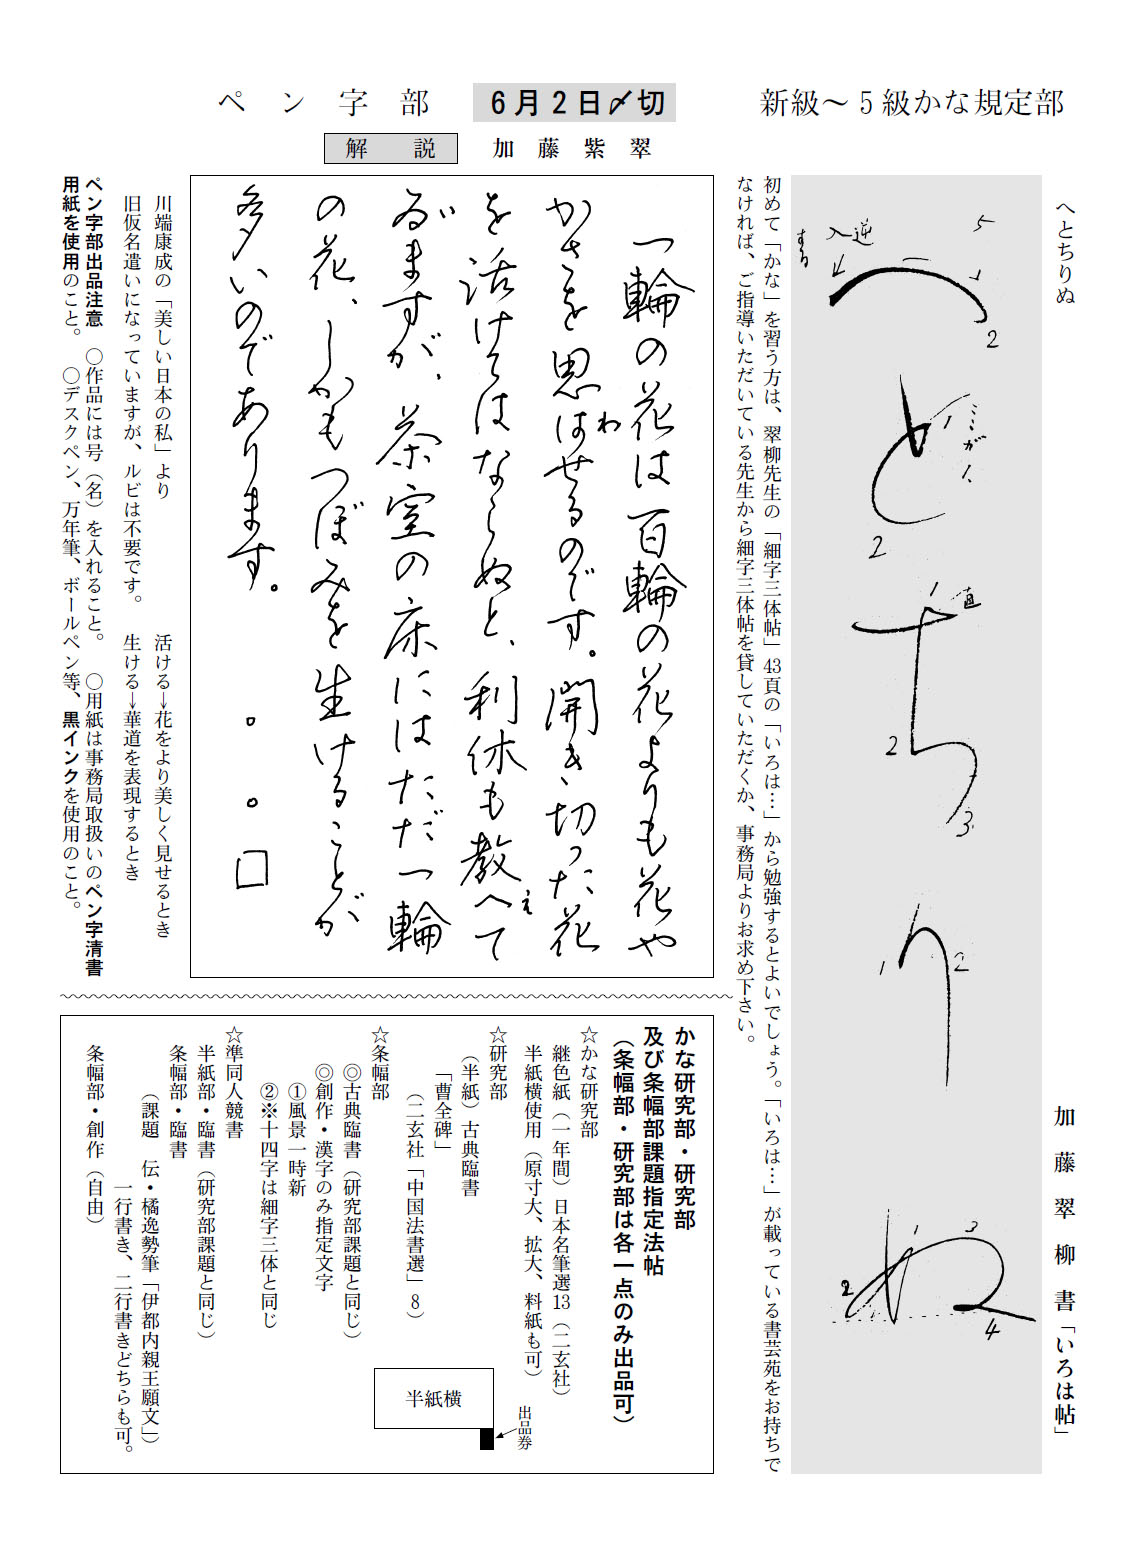 新級～5級かな規定部
6月2日〆切
ペン字部
解説
加藤紫翠
へとちりぬ
加藤翠柳書「いろは帖」
へ
逆
入
する
1
5
2
と
1
ミ
ガ
ハ
2
ち
1
直
2
3
り
1
2
ぬ
1
2
3
4
初めて「かな」を習う方は、翠柳先生の「細字三体帖」43頁の「いろは…」から勉強するとよいでしょう。「いろは…」が載っている書芸苑をお持ちで
なければ、ご指導いただいている先生から細字三体帖を貸していただくか、事務局よりお求め下さい。
一輪の花は百輪の花よりも花や
かさを思はせるのです。開き切つた花
わ
を活けてはならぬと、利休も教へて
え
ゐますが、茶室の床にはただ一輪
い
の花、しかもつぼみを生けることが
多いのであります。　○○□
川端康成の「美しい日本の私」より
旧仮名遣いになっていますが、ルビは不要です。
活ける→花をより美しく見せるとき
生ける→華道を表現するとき
ペン字部出品注意　○作品には号（名）を入れること。　○用紙は事務局取扱いのペン字清書
用紙を使用のこと。　○デスクペン、万年筆、ボールペン等、黒インクを使用のこと。
かな研究部・研究部
及び条幅部課題指定法帖
（条幅部・研究部は各一点のみ出品可）
☆かな研究部
継色紙（一年間）日本名筆選13（二玄社）
半紙横使用（原寸大、拡大、料紙も可）
☆研究部
（半紙）古典臨書
「曹全碑」
（二玄社「中国法書選」8）
☆条幅部
◎古典臨書（研究部課題と同じ）
◎創作・漢字のみ指定文字
①風景一時新
②※十四字は細字三体と同じ
☆準同人競書
半紙部・臨書（研究部課題と同じ）
条幅部・臨書
（課題　伝・橘逸勢筆「伊都内親王願文」）
一行書き、二行書きどちらも可。
条幅部・創作（自由）
半紙横
出品券